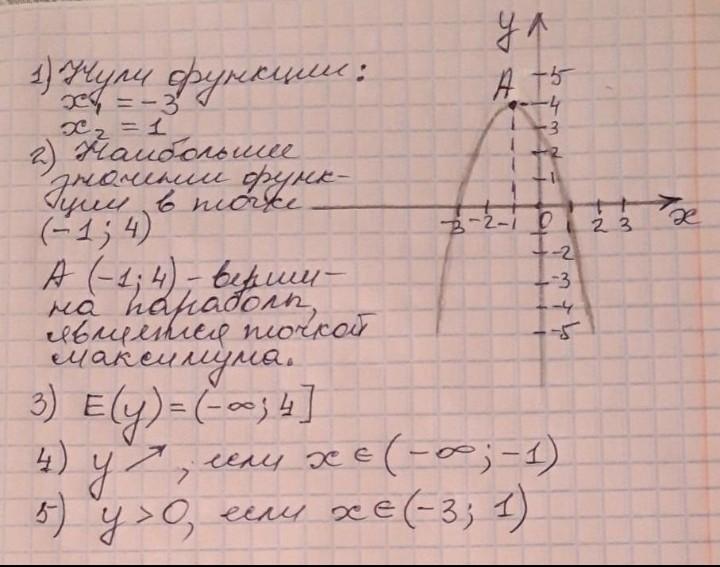 1) Нули функции:
x₁ = -3
x₂ = 1
2) Наибольшее
значении функ-
ции в точке
(-1; 4)
A (-1; 4) - верши-
на параболы,
является точкой
максимума.
3) E(y) = (-∞; 4]
4) y ↗, если x ∈ (-∞; -1)
5) y > 0, если x ∈ (-3; 1)
y
5
A
4
3
2
1
-3 -2 -1 0 1 2 3 x
-2
-3
-4
-5